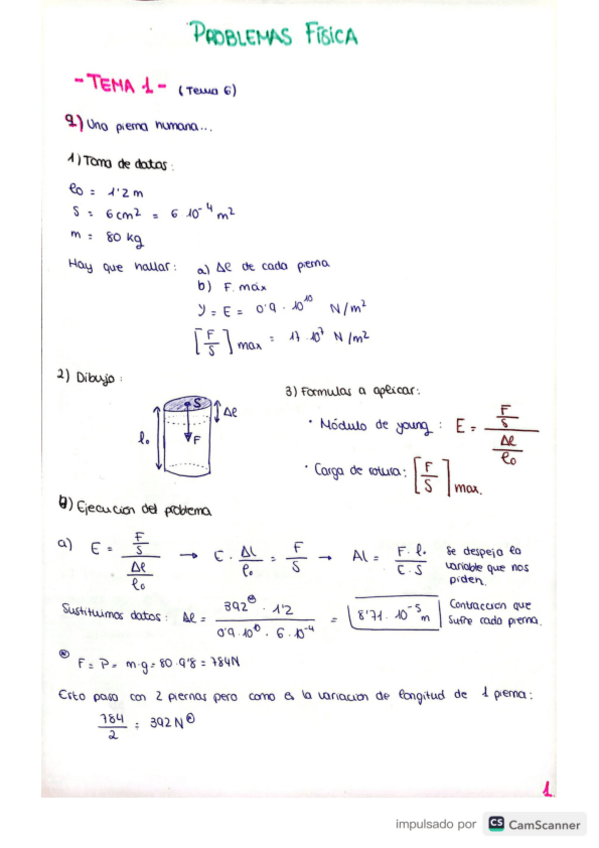 PROBLEMAS FÍSICA
- TEMA 1 - (Tema 6)
9) Una pierna humana...
1) Toma de datos:
l0 = 1'2 m
S = 6 cm² = 6·10⁻⁴ m²
m = 80 kg
Hay que hallar: a) Δl de cada pierna
b) F. máx
Y = E = 0'9 · 10¹⁰ N/m²
[F/S] max = 17·10⁷ N/m²
2) Dibujo:
S
Δl
l0
F
3) Formulas a aplicar:
· Módulo de young: E = (F/S) / (Δl/l0)
· Carga de rotura: [F/S] max.
4) Ejecucion del problema
a) E = (F/S) / (Δl/l0) → E · Δl/l0 = F/S → Δl = F·l0 / E·S
Se despeja la
variable que nos
piden.
Sustituimos datos: Δl = 392⊛ · 1'2 / 0'9·10¹⁰ · 6·10⁻⁴ = 8'71·10⁻⁵ m
Contracción que
sufre cada pierna.
⊛ F = P = m·g = 80·9'8 = 784N
Esto pasa con 2 piernas pero como es la variacion de longitud de 1 pierna:
784/2 = 392 N⊛
1
impulsado por CS CamScanner